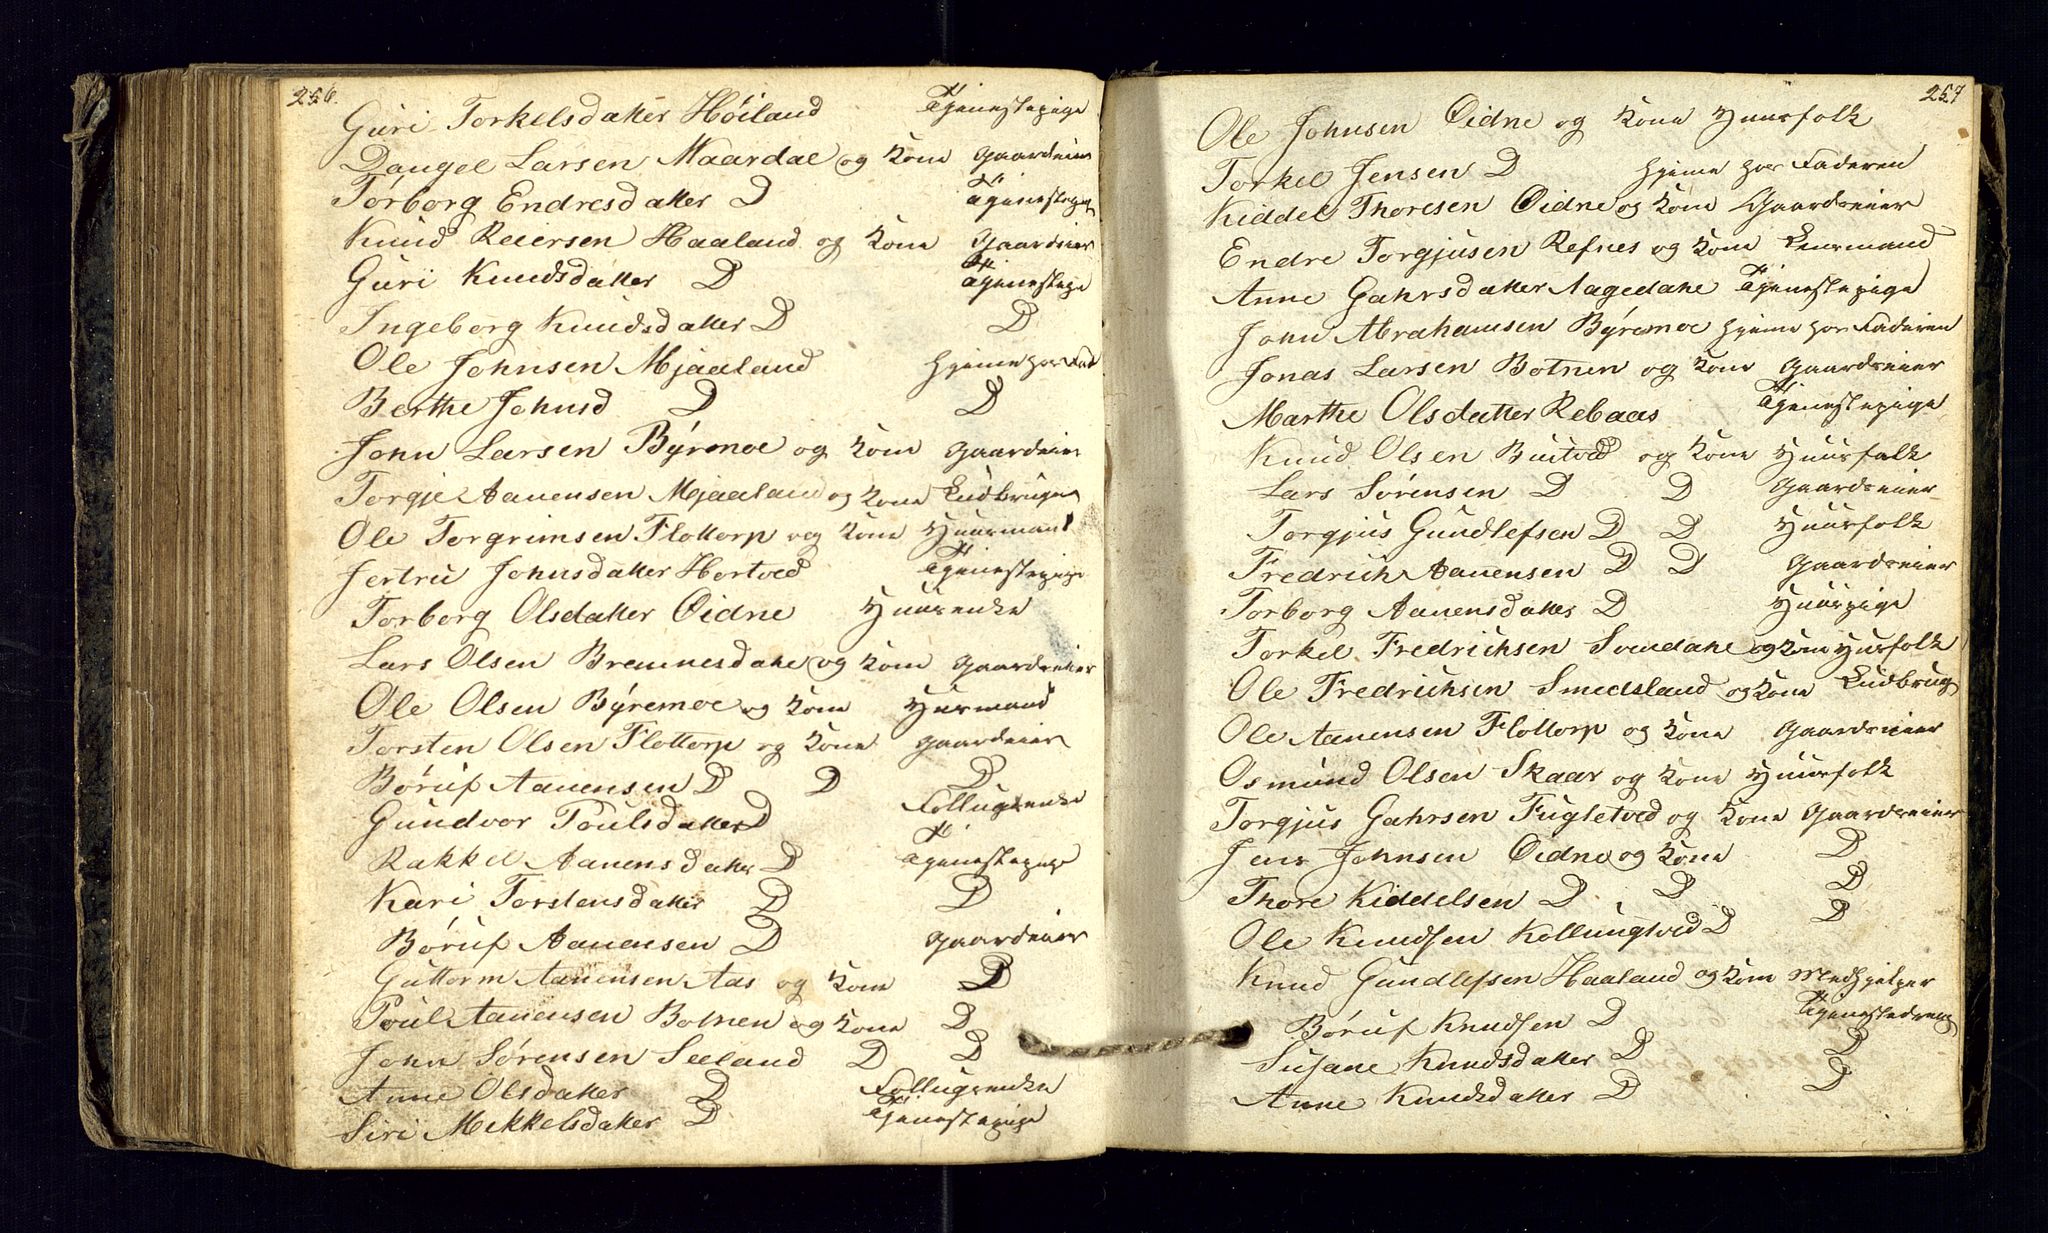 256.
Guri Torkelsdatter Höiland Tjenestepige
Dangel Larsen Maardal og Kone gaardeier
Torborg Endresdatter D Tjenestepige
Knud Reiersen Haaland og Kone gaardeier
Guri Knudsdatter D Tjenestepige
Ingeborg Knudsdatter D D
Ole Johnsen Mjaaland hjeme hos Fad
Berthe Johnsd D D
John Larsen Býrmoe og Kone gaardeier
Torgje Aanensen Mjaaland og Kone Ludbruger
Ole Torgrimsen Flottorp og Kone Huusmand
Jertru Johnsdatter Hortved Tjenestepige
Torborg Olsdatter Öidne Huusenke
Lars Olsen Bremnesdahe og Kone gaardeier
Ole Olsen Býremoe og Kone Husmand
Torsten Olsen Flottorp og Kone gaardeier
Böruf Aanensen D D D
Gundvor Poulsdatter D Follugsenke
Rakkel Aanensdatter D Tjenestepige
Kari Torstensdatter D D
Böruf Aanensen D gaardeier
Guttorm Aanensen Aas og Kone D
Poul Aanensen Botnen og Kone D
John Sörensen Seeland D D
Anne Olsdatter D Follugsenke
Siri Mekkelsdatter D Tjenestepige
257
Ole Johnsen Öidne og Kone Huusfolk
Torkel Jensen D hjeme hos Faderen
Kiddel Thoresen Öidne og Kone Gaardeier
Endre Torgjusen Refnes og Kone Lensmand
Anne Gahrsdatter Aagedahe Tjenestepige
John Abrahamsen Býremoe hjeme hos Faderen
Jonas Larsen Botnen og Kone gaardeier
Marthe Olsdatter Rebaas Tjenestepige
Knud Olsen Bustved og Kone Huusfolk
Lars Sörensen D D gaardeier
Torgjus Gundlefsen D D Huusfolk
Fredrich Aanensen D D gaardeier
Torborg Aanensdatter D Huuspige
Torkel Fredrichsen Svendahe og Kone Husfolk
Ole Fredrichsen Smedsland og Kone Ludbrug
Ole Aanensen Flottorp og Kone gaardeier
Osmund Olsen Skaar og Kone Huusfolk
Torgjus Gahrsen Fugletved og Kone gaardeier
Jens Johnsen Öidne og Kone D
Thore Kiddelsen D D D
Ole Knudsen Kollungtved D D
Knud Gundlefsen Haaland og Kone Medhjelper
Böruf Knudsen D Tjenestedreng
Susane Knudsdatter D D
Anne Knudsdatter D D